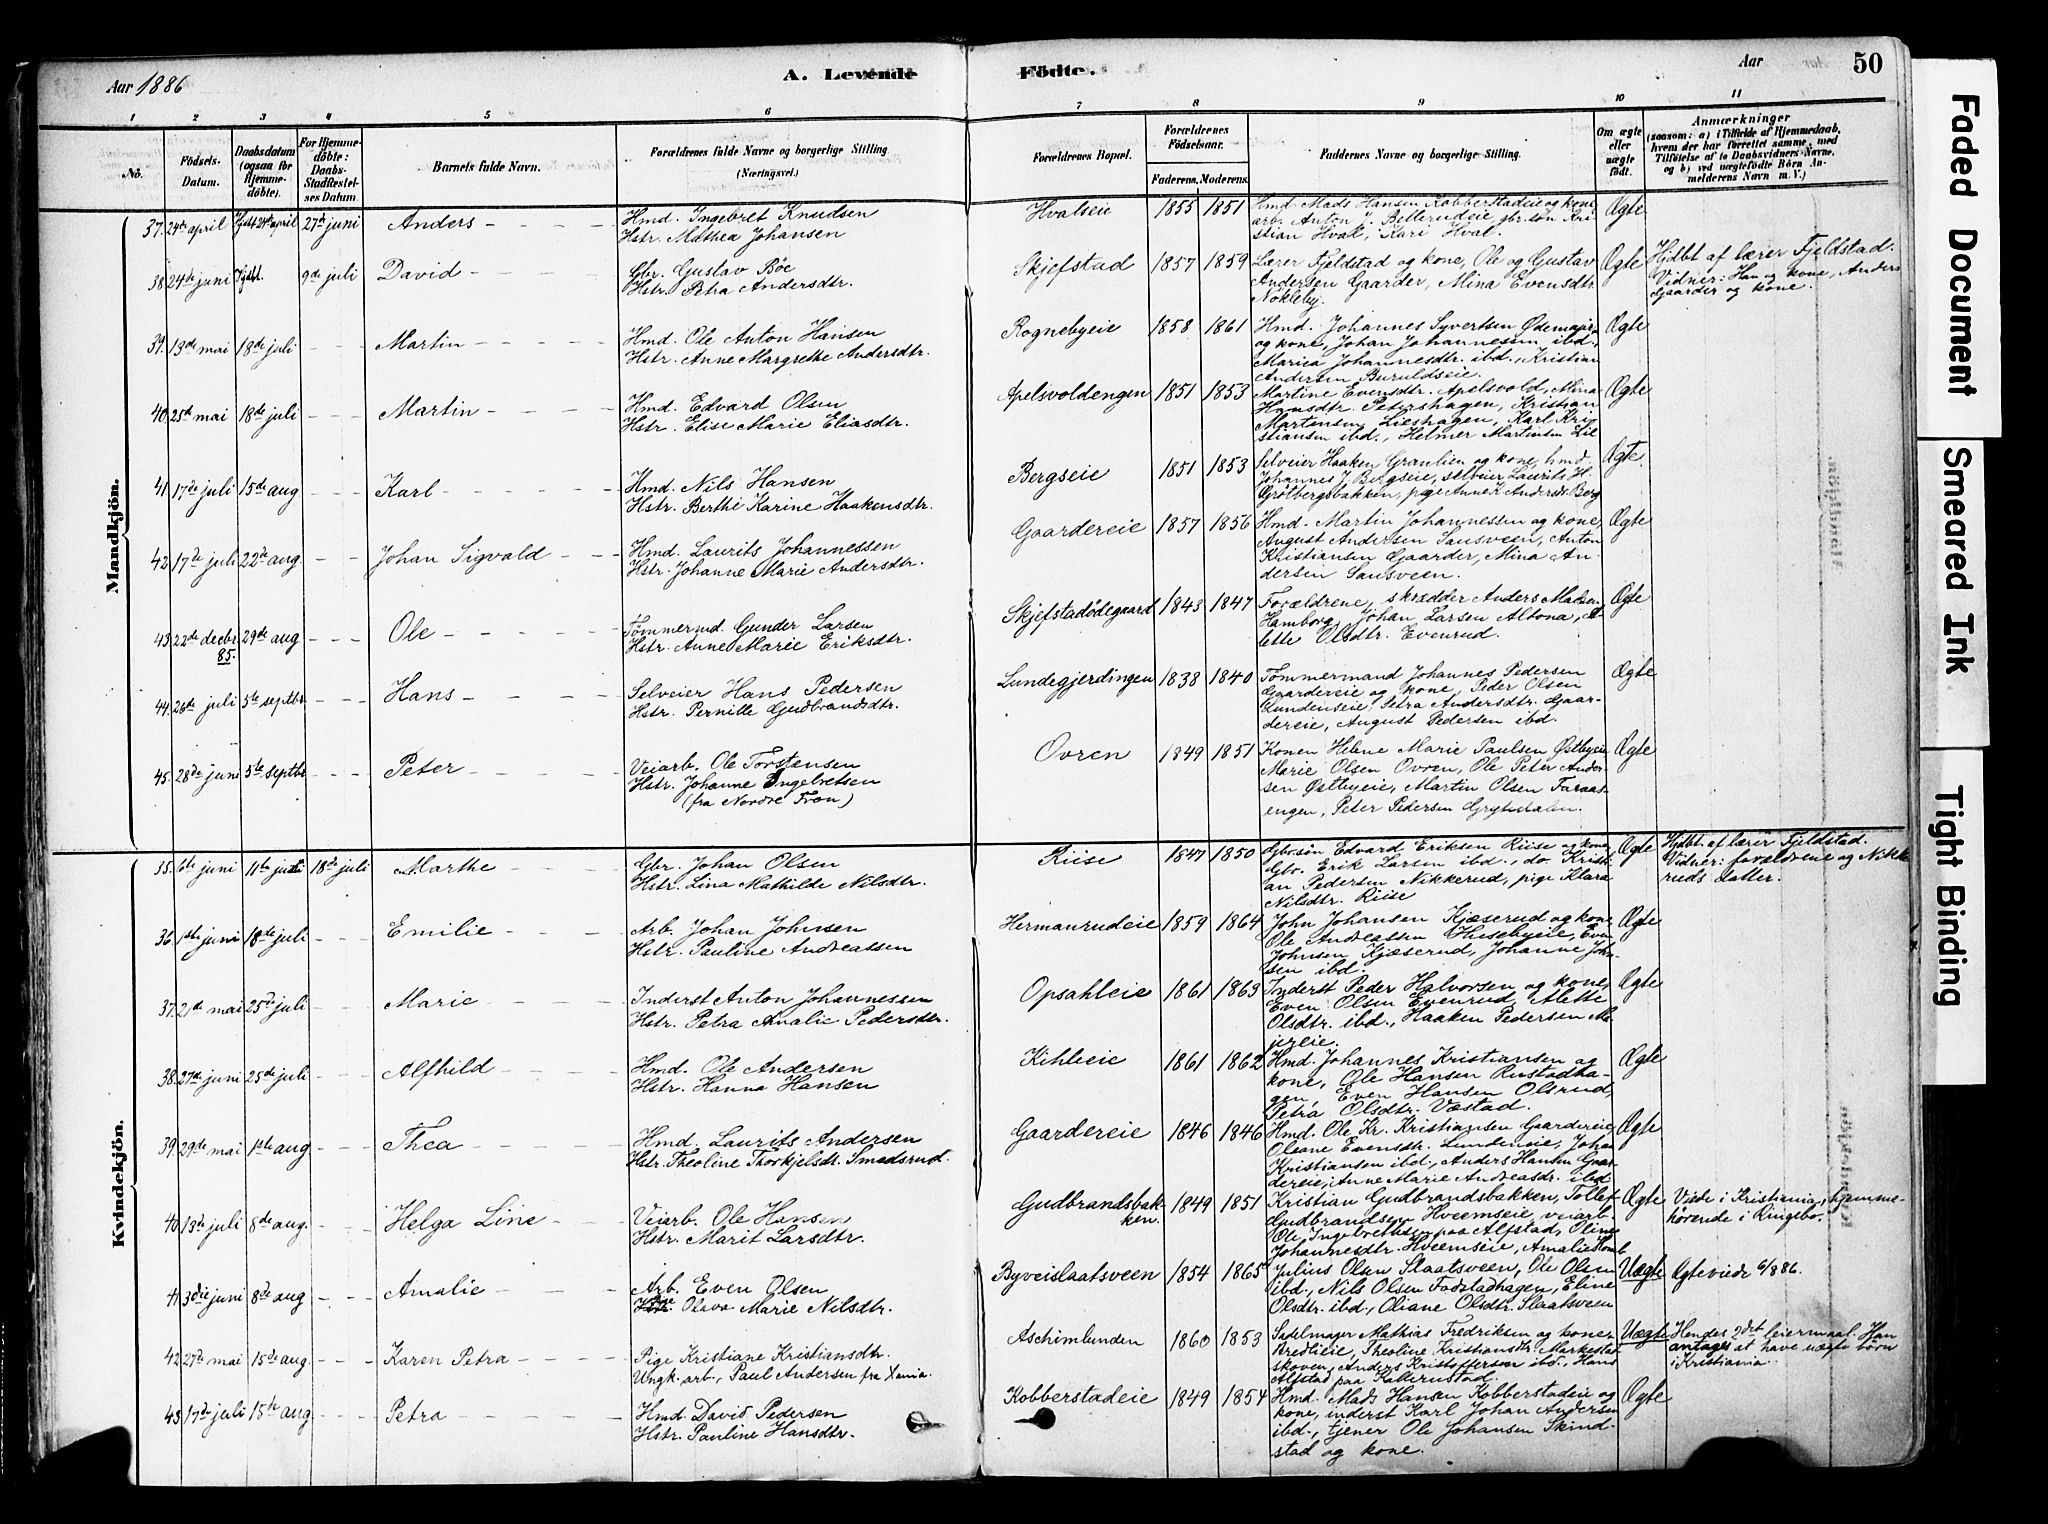 Aar 1886
A. Levende
Födte.
Aar
50
1 2 3 4 5 6 7 8 9 10 11
No.
Födsels-Datum.
Daabsdatum (ogsaa for Hjemme-döbte).
For Hjemme-döbte: Daabs-Stadfæstel-ses Datum.
Barnets fulde Navn.
Forældrenes fulde Navne og borgerlige Stilling (Næringsvei.)
Forældrenes Bopæl.
Forældrenes Födselsaar.
Faderens. Moderens.
Faddernes Navne og borgerlige Stilling.
Om ægte eller uægte födt.
Anmærkninger
(saasom: a) i Tilfælde af Hjemmedaab,
hvem der har forrettet samme, med
Tilföielse af to Daabsvidners Navne,
og b) ved uægtefödte Börn An-
melderens Navn m. V.)
Mandkjön.
37. 24de april Hjdt 24de april 27de juni Anders
Hmd. Ingebret Knudsen
Hstr. Mathea Johansen
Hvalseie 1855 1851
Hmd. Mads Hansen Kobberstadeie og kone,
arb. Anton J. Bellerudeie, gbr.søn Kri-
stian Hval, Kari Hval.
Ægte
38. 24de juni Hjdbt. 9de juli David
Gbr. Gustav Böe
Hstr. Petra Andersdtr.
Skjefstad 1857 1859
Lærer Fjeldstad og kone, Ole og Gustav
Andersen Gaarder, Mina Evensdtr.
Nökleby.
Ægte
Hjdbt af lærer Fjeldstad.
Vidner: Han og kone, Anders
Gaarder og kone.
39. 13de mai 18de juli Martin
Hmd. Ole Anton Hansen
Hstr. Anne Margrethe Andersdtr.
Rognebyeie 1858 1861
Hmd. Johannes Syvertsen Ødemark
og kone, Johan Johannessen ibd.,
Marica Johannesdtr. ibd., Kristian
Andersen Buruldseie.
Ægte
40. 25de mai 18de juli Martin
Hmd. Edvard Olsen
Hstr. Elise Marie Eliasdtr.
Apelsvoldengen 1851 1853
Martine Evensdtr. Apelsvold, Mina
Hansdtr. Petershagen, Kristian
Martensen Lieshagen, Karl Kri-
stiansen ibd., Helmer Martinsen Lie
Ægte
41. 17de juli 15de aug Karl
Hmd. Nils Hansen
Hstr. Berthe Karine Haakensdtr.
Bergseie 1851 1853
Selveier Haaken Granlien og kone, hmd.
Johannes J. Bergseie, selveier Laurits H.
Grötbergsbakken, pige Anne K. Andersdr Berg
Ægte
42. 17de juli 22de aug. Johan Sigvald
Hmd. Laurits Johannessen
Hstr. Johanne Marie Andersdtr.
Gaardereie 1857 1856
Hmd. Martin Johannessen og kone,
August Andersen Sansveen, Anton
Kristiansen Gaarder, Mina An-
dersen Sansveen.
Ægte
43. 22de decbr 85. 29de aug Ole
Tömmermd. Gunder Larsen
Hstr. Anne Marie Eriksdtr.
Skjefstadödegaard 1843 1847
Forældrene, skrædder Anders Madsen
Hamborg, Johan Larsen Altona, A-
lette Olsdtr. Evenrud.
Ægte
44. 26de juli 5te septbr Hans
Selveier Hans Pedersen
Hstr. Pernille Gudbrandsdtr.
Lundegjerdingen 1838 1840
Tömmermand Johannes Pedersen
Gaardereie og kone, Peder Olsen
Lundenseie, Petra Andersdtr. Gaar-
dereie, August Pedersen ibd.
Ægte
45. 28de juni 5te septbr Peter
Veiarb. Ole Torstensen
Hstr. Johanne Engebretsen
(fra Nordre Fron)
Ovren 1849 1851
Konen Helene Marie Paulsen Östbyeie
Marie Olsen Ovren, Ole Peter Ander-
sen Östbyeie, Martin Olsen Faraas-
engen, Peter Pedersen Grytedalen.
Ægte
Kvindekjön.
35. 6te juni 11te juli 18de juli Marthe
Gbr. Johan Olsen
Hstr. Lina Mathilde Nilsdtr.
Riise 1847 1850
Gbr.søn Edvard Eriksen Riise og kone,
Gbr. Erik Larsen ibd., do. Kristi-
an Pedersen Nikkerud, pige Klara
Nilsdtr. Riise
Ægte
Hjdbt. af lærer Fjeldstad.
Vidner: forældrene og Nikke-
ruds datter.
36. 1ste juni 18de juli Emilie
Arb. Johan Johnsen
Hstr. Pauline Andreassen
Hermanrudeie 1859 1864
John Johansen Kjæserud og kone,
Ole Andreassen Husebyeie, Even
Johnsen Kjæserud, Johanne John-
sen ibd.
Ægte
37. 21de mai 25de juli Marie
Inderst Anton Johannessen
Hstr. Petra Amalie Pedersdtr.
Opsahleie 1861 1863
Inderst Peder Halvorsen og kone,
Even Olsen Evenrud, Alette
Olsdtr. ibd., Haaken Pedersen Me-
jereie.
Ægte
38. 27de juni 25de juli Alfhild
Hmd. Ole Andersen
Hstr. Hanna Hansen
Kihleie 1861 1862
Hmd. Johannes Kristiansen og
kone, Ole Hansen Rustadha-
gen, Even Hansen Olsrud,
Petra Olsdtr. Vestad.
Ægte
39. 29de mai 1ste aug Thea
Hmd. Laurits Andersen
Hstr. Theoline Thorkjelsdr. Smedsrud.
Gaardereie 1846 1846
Hmd. Ole Kr. Kristiansen Gaardereie
Oleane Evensdtr. Lundeneie, Johan
Kristiansen ibd., Anders Hansen Gaar-
dereie, Anne Marie Andreasdr. ibd
Ægte
40. 13de juli 8de aug. Helga Line
Veiarb. Ole Hansen
Hstr. Marit Larsdtr.
Gudbrandsbak-
ken. 1849 1851
Kristian Gudbrandsbakken, Tollef
Gudbrandsen Hveemseie, veiarb.
Ole Ingebretsen paa Alfstad, Oline
Johannesdtr. Hveemseie, Amalie
Ægte
Viede i Kristiania, hjemme-
hörende i Ringebo.
41. 30die juni 8de aug Amalie
Arb. Even Olsen
Olava Marie Nilsdtr.
Byveislaatsveen 1854 1865
Julius Olsen Slaatsveen, Ole Olsen
ibd., Nils Olsen Fodstadhagen, Eline
Olsdtr. ibd., Oliane Olsdtr. Slaatsveen
Uægte
Ægteviede 6/8 86.
42. 27de mai 15de aug. Karen Petra
Pige Kristiane Kristiansdtr.
Ungk. arb., Paul Andersen fra Xania.
Aschimlunden 1860 1853
Sadelmager Mathias Fredriksen og kone
Bredlieie, Theoline Kristiansdtr. Markestad
skoven, Anders Kristoffersen ibd., Hans
Alfstad paa Kallerustad.
Uægte
Hendes 2det leiermaal. Han
antages at have uægte börn
i Kristiania.
43. 17de juli 15de aug Petra
Hmd. David Pedersen
Hstr. Pauline Hansdtr.
Kobberstadeie 1849 1854
Hmd. Mads Hansen Kobberstadeie og
kone, inderst Karl Johan Andersen
ibd., tjener Ole Johansen Skind-
stad og kone.
Ægte
Faded Document
Smeared Ink
Tight Binding